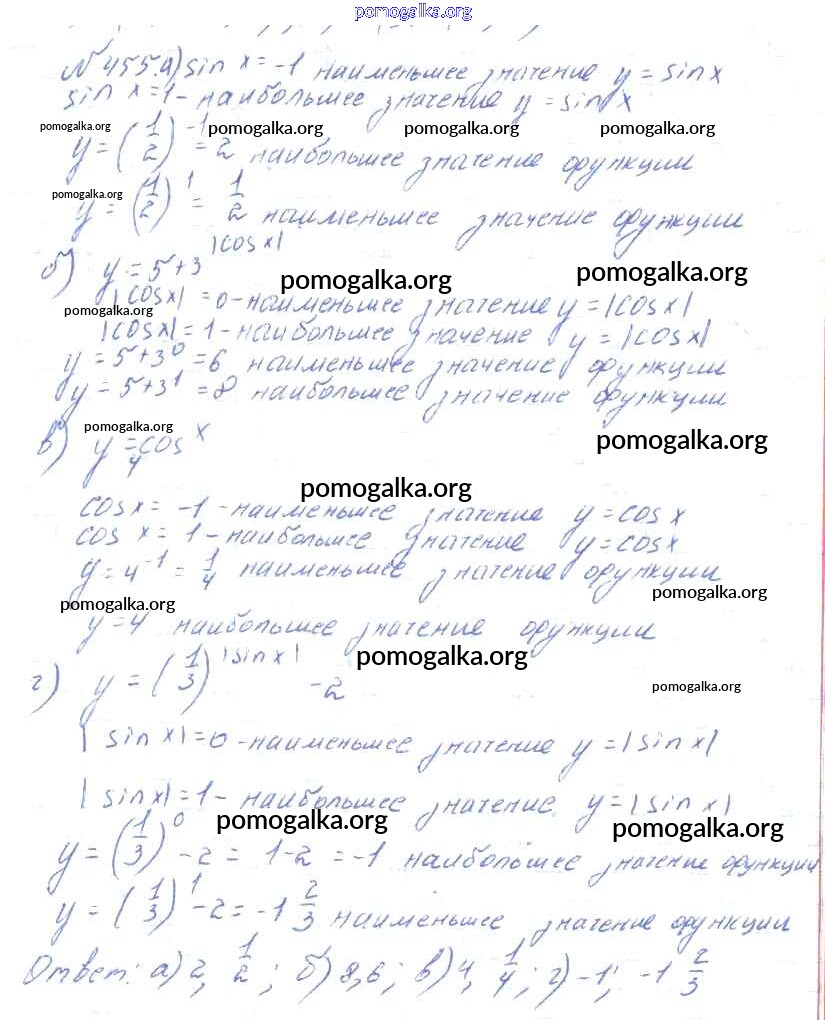 pomogalka.org
№ 455. а) sin x = -1 наименьшее значение y = sin x
sin x = 1 - наибольшее значение y = sin x
pomogalka.org pomogalka.org pomogalka.org pomogalka.org
y = (1/2)^-1 = 2 наибольшее значение функции
pomogalka.org
y = (1/2)^1 = 1/2 наименьшее значение функции
б) y = 5 + 3^|cos x|
pomogalka.org pomogalka.org
|cos x| = 0 - наименьшее значение y = |cos x|
pomogalka.org
|cos x| = 1 - наибольшее значение y = |cos x|
y = 5 + 3^0 = 6 наименьшее значение функции
y = 5 + 3^1 = 8 наибольшее значение функции
pomogalka.org
в) y = 4^cos x
pomogalka.org
pomogalka.org
cos x = -1 - наименьшее значение y = cos x
cos x = 1 - наибольшее значение y = cos x
y = 4^-1 = 1/4 наименьшее значение функции
pomogalka.org pomogalka.org
y = 4 наибольшее значение функции
pomogalka.org
г) y = (1/3)^|sin x| - 2
pomogalka.org
|sin x| = 0 - наименьшее значение y = |sin x|
|sin x| = 1 - наибольшее значение y = |sin x|
pomogalka.org pomogalka.org
y = (1/3)^0 - 2 = 1 - 2 = -1 наибольшее значение функции
y = (1/3)^1 - 2 = -1 2/3 наименьшее значение функции
Ответ: а) 2, 1/2; б) 8, 6; в) 4, 1/4; г) -1; -1 2/3